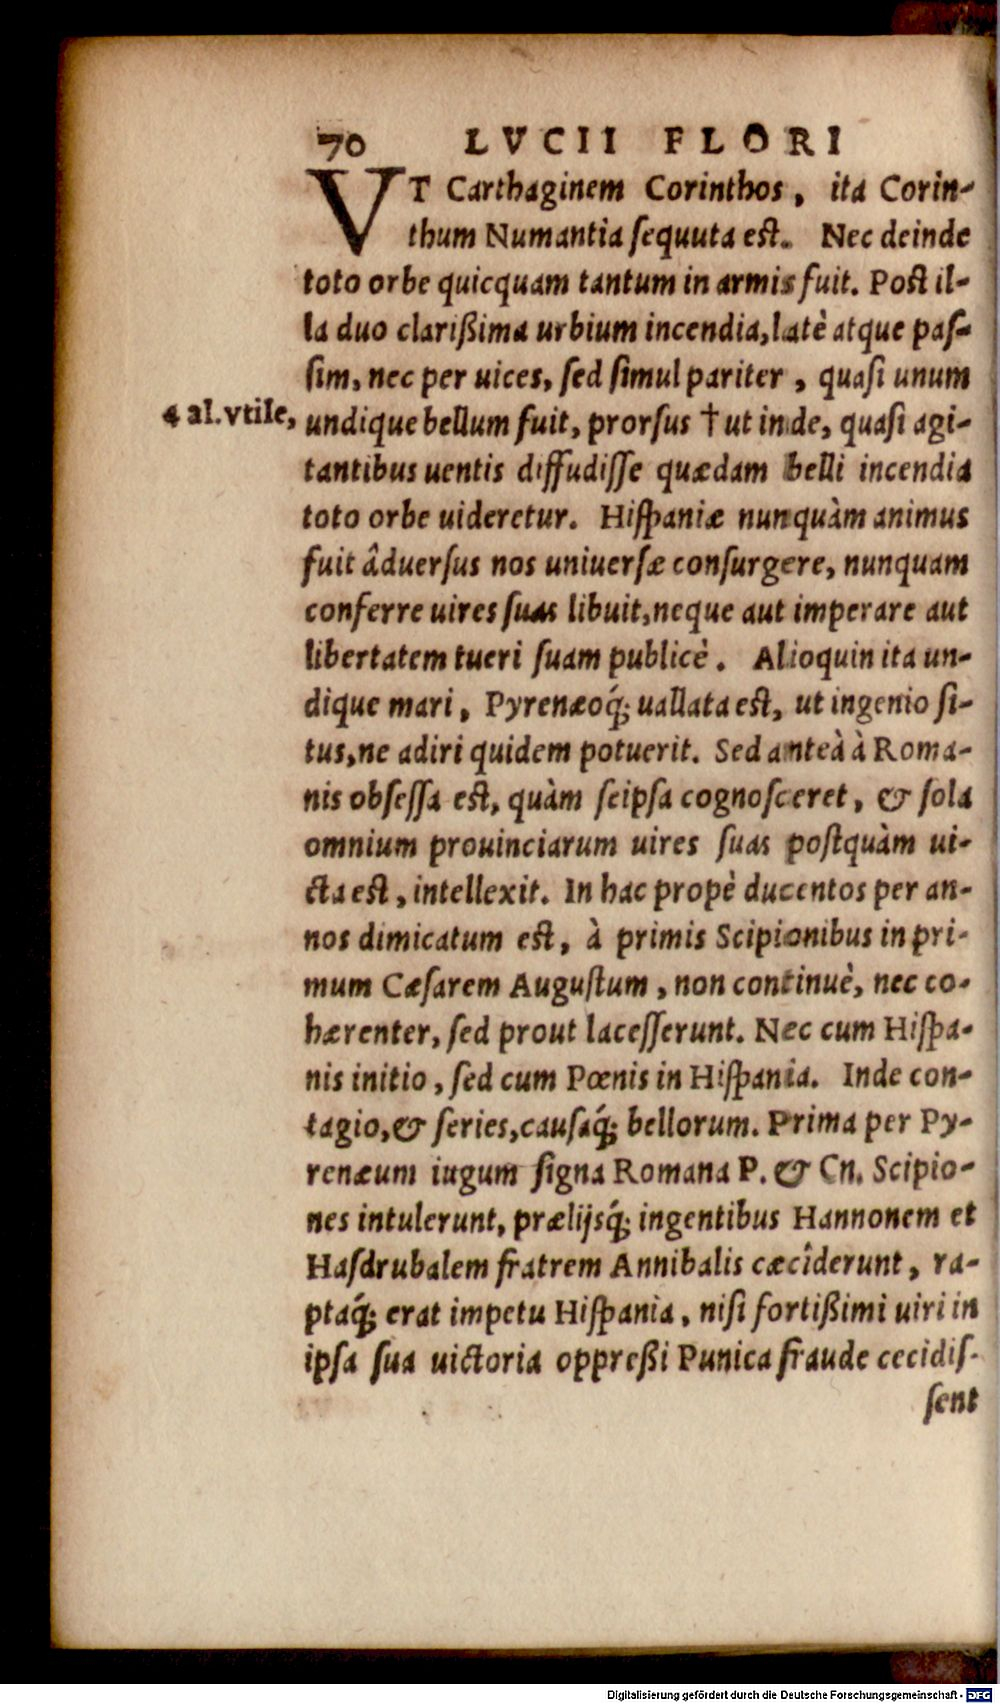 70 LVCII FLORI
VT Carthaginem Corinthos, ita Corin-
thum Numantia ſequuta eſt. Nec deinde
toto orbe quicquam tantum in armis fuit. Poſt il-
la duo clarißima urbium incendia, latè atque paſ-
ſim, nec per uices, ſed ſimul pariter, quaſi unum
4 al. vtile,
undique bellum fuit, prorſus † ut inde, quaſi agi-
tantibus uentis diffudiſſe quædam belli incendia
toto orbe uideretur. Hiſpaniæ nunquàm animus
fuit âduerſus nos uniuerſæ conſurgere, nunquam
conferre uires ſuas libuit, neque aut imperare aut
libertatem tueri ſuam publicè. Alioquin ita un-
dique mari, Pyrenæoq́; uallata eſt, ut ingenio ſi-
tus, ne adiri quidem potuerit. Sed anteà à Roma-
nis obſeſſa eſt, quàm ſeipſa cognoſceret, & ſola
omnium prouinciarum uires ſuas poſtquàm ui-
cta eſt, intellexit. In hac propè ducentos per an-
nos dimicatum eſt, à primis Scipionibus in pri-
mum Cæſarem Auguſtum, non continuè, nec co-
hærenter, ſed prout laceſſerunt. Nec cum Hiſpa-
nis initio, ſed cum Pœnis in Hiſpania. Inde con-
tagio, & ſeries, cauſaq́; bellorum. Prima per Py-
renæum iugum ſigna Romana P. & Cn. Scipio-
nes intulerunt, prælijsq́; ingentibus Hannonem et
Haſdrubalem fratrem Annibalis cæcîderunt, ra-
ptaq́; erat impetu Hiſpania, niſi fortißimi uiri in
ipſa ſua uictoria oppreßi Punica fraude cecidiſ-
ſent
Digitalisierung gefördert durch die Deutsche Forschungsgemeinschaft - DFG